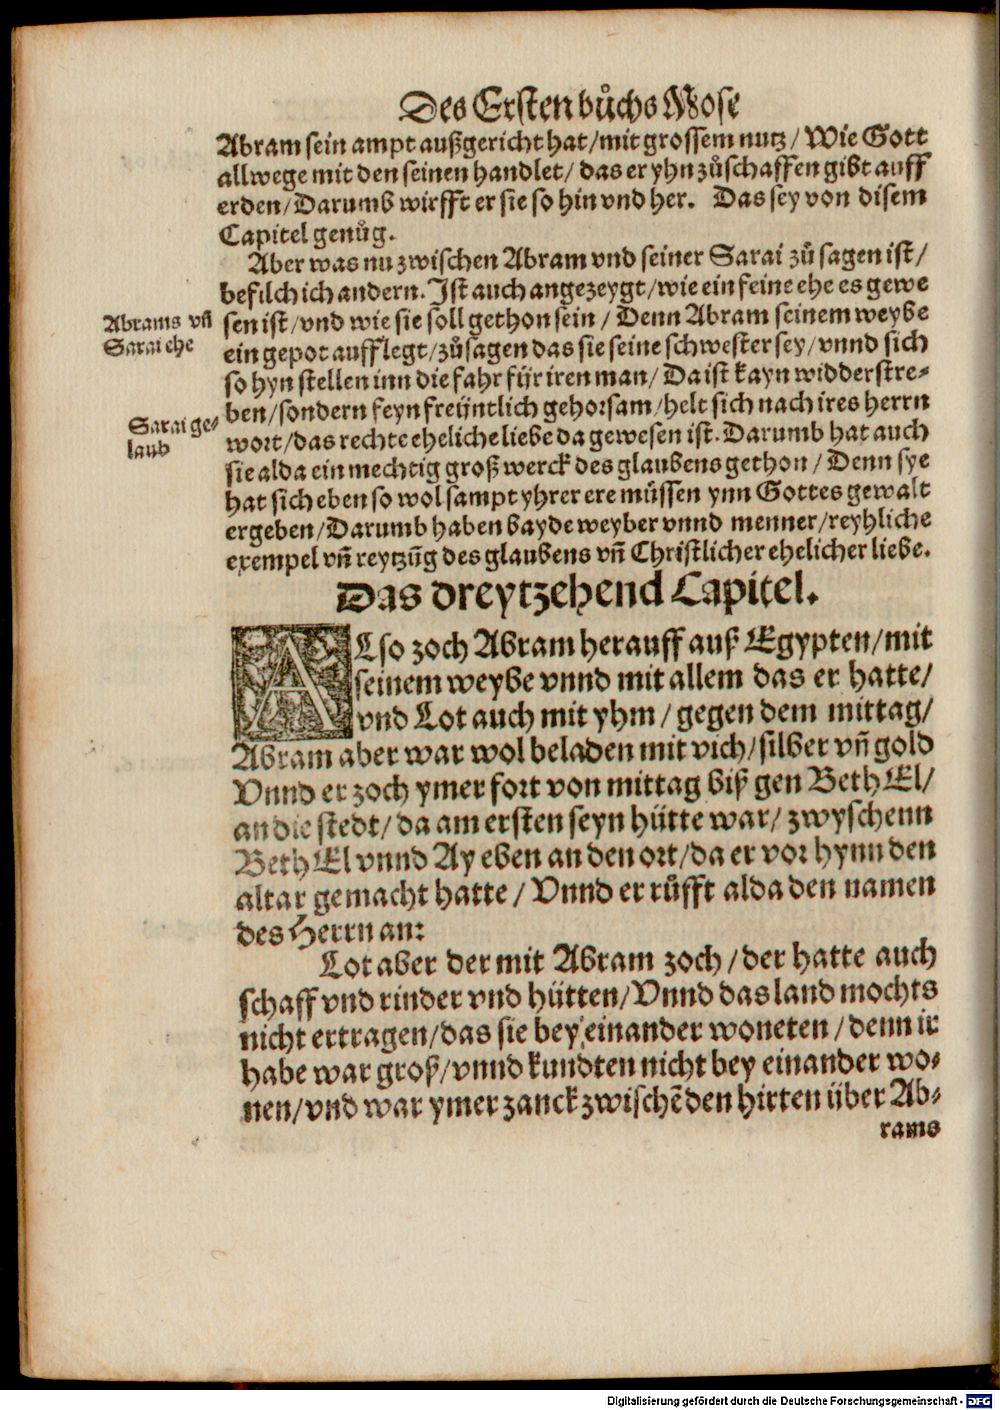 Des Ersten bůchs Mose
Abram sein ampt außgericht hat/mit grossem nutz/ Wie Gott
allwege mit den seinen handlet/ das er yhn zůschaffen gibt auff
erden/Darumb wirfft er sie so hin vnd her. Das sey von disem
Capitel genůg.
Aber was nu zwischen Abram vnd seiner Sarai zů sagen ist/
befilch ich andern. Ist auch angezeygt/wie ein feine ehe es gewe
Abrams vñ
Sarai ehe
sen ist/vnd wie sie soll gethon sein/ Denn Abram seinem weybe
ein gepot aufflegt/zůsagen das sie seine schwester sey/vnnd sich
so hyn stellen inn die fahr für iren man/ Da ist kayn widderstre-
Sarai ge-
laub
ben/sondern feyn freüntlich gehorsam/helt sich nach ires herrn
wort/das rechte eheliche liebe da gewesen ist. Darumb hat auch
sie alda ein mechtig groß werck des glaubens gethon/ Denn sye
hat sich eben so wol sampt yhrer ere müssen ynn Gottes gewalt
ergeben/Darumb haben bayde weyber vnnd menner/reyhliche
exempel vñ reytzũg des glaubens vñ Christlicher ehelicher liebe.
Das dreytzehend Capitel.
ALso zoch Abram herauff auß Egypten/mit
seinem weybe vnnd mit allem das er hatte/
vnd Lot auch mit yhm/gegen dem mittag/
Abram aber war wol beladen mit vich/silber vñ gold
Vnnd er zoch ymer fort von mittag biß gen Beth El/
an die stedt/da am ersten seyn hütte war/ zwyschenn
Beth El vnnd Ay eben an den ort/da er vor hynn den
altar gemacht hatte/ Vnnd er růfft alda den namen
des Herrn an:
Lot aber der mit Abram zoch/der hatte auch
schaff vnd rinder vnd hütten/Vnnd das land mochts
nicht ertragen/das sie bey einander woneten/denn ir
habe war groß/vnnd kundten nicht bey einander wo-
nen/vnd war ymer zanck zwischẽ den hirten über Ab-
rams
Digitalisierung gefördert durch die Deutsche Forschungsgemeinschaft - DFG